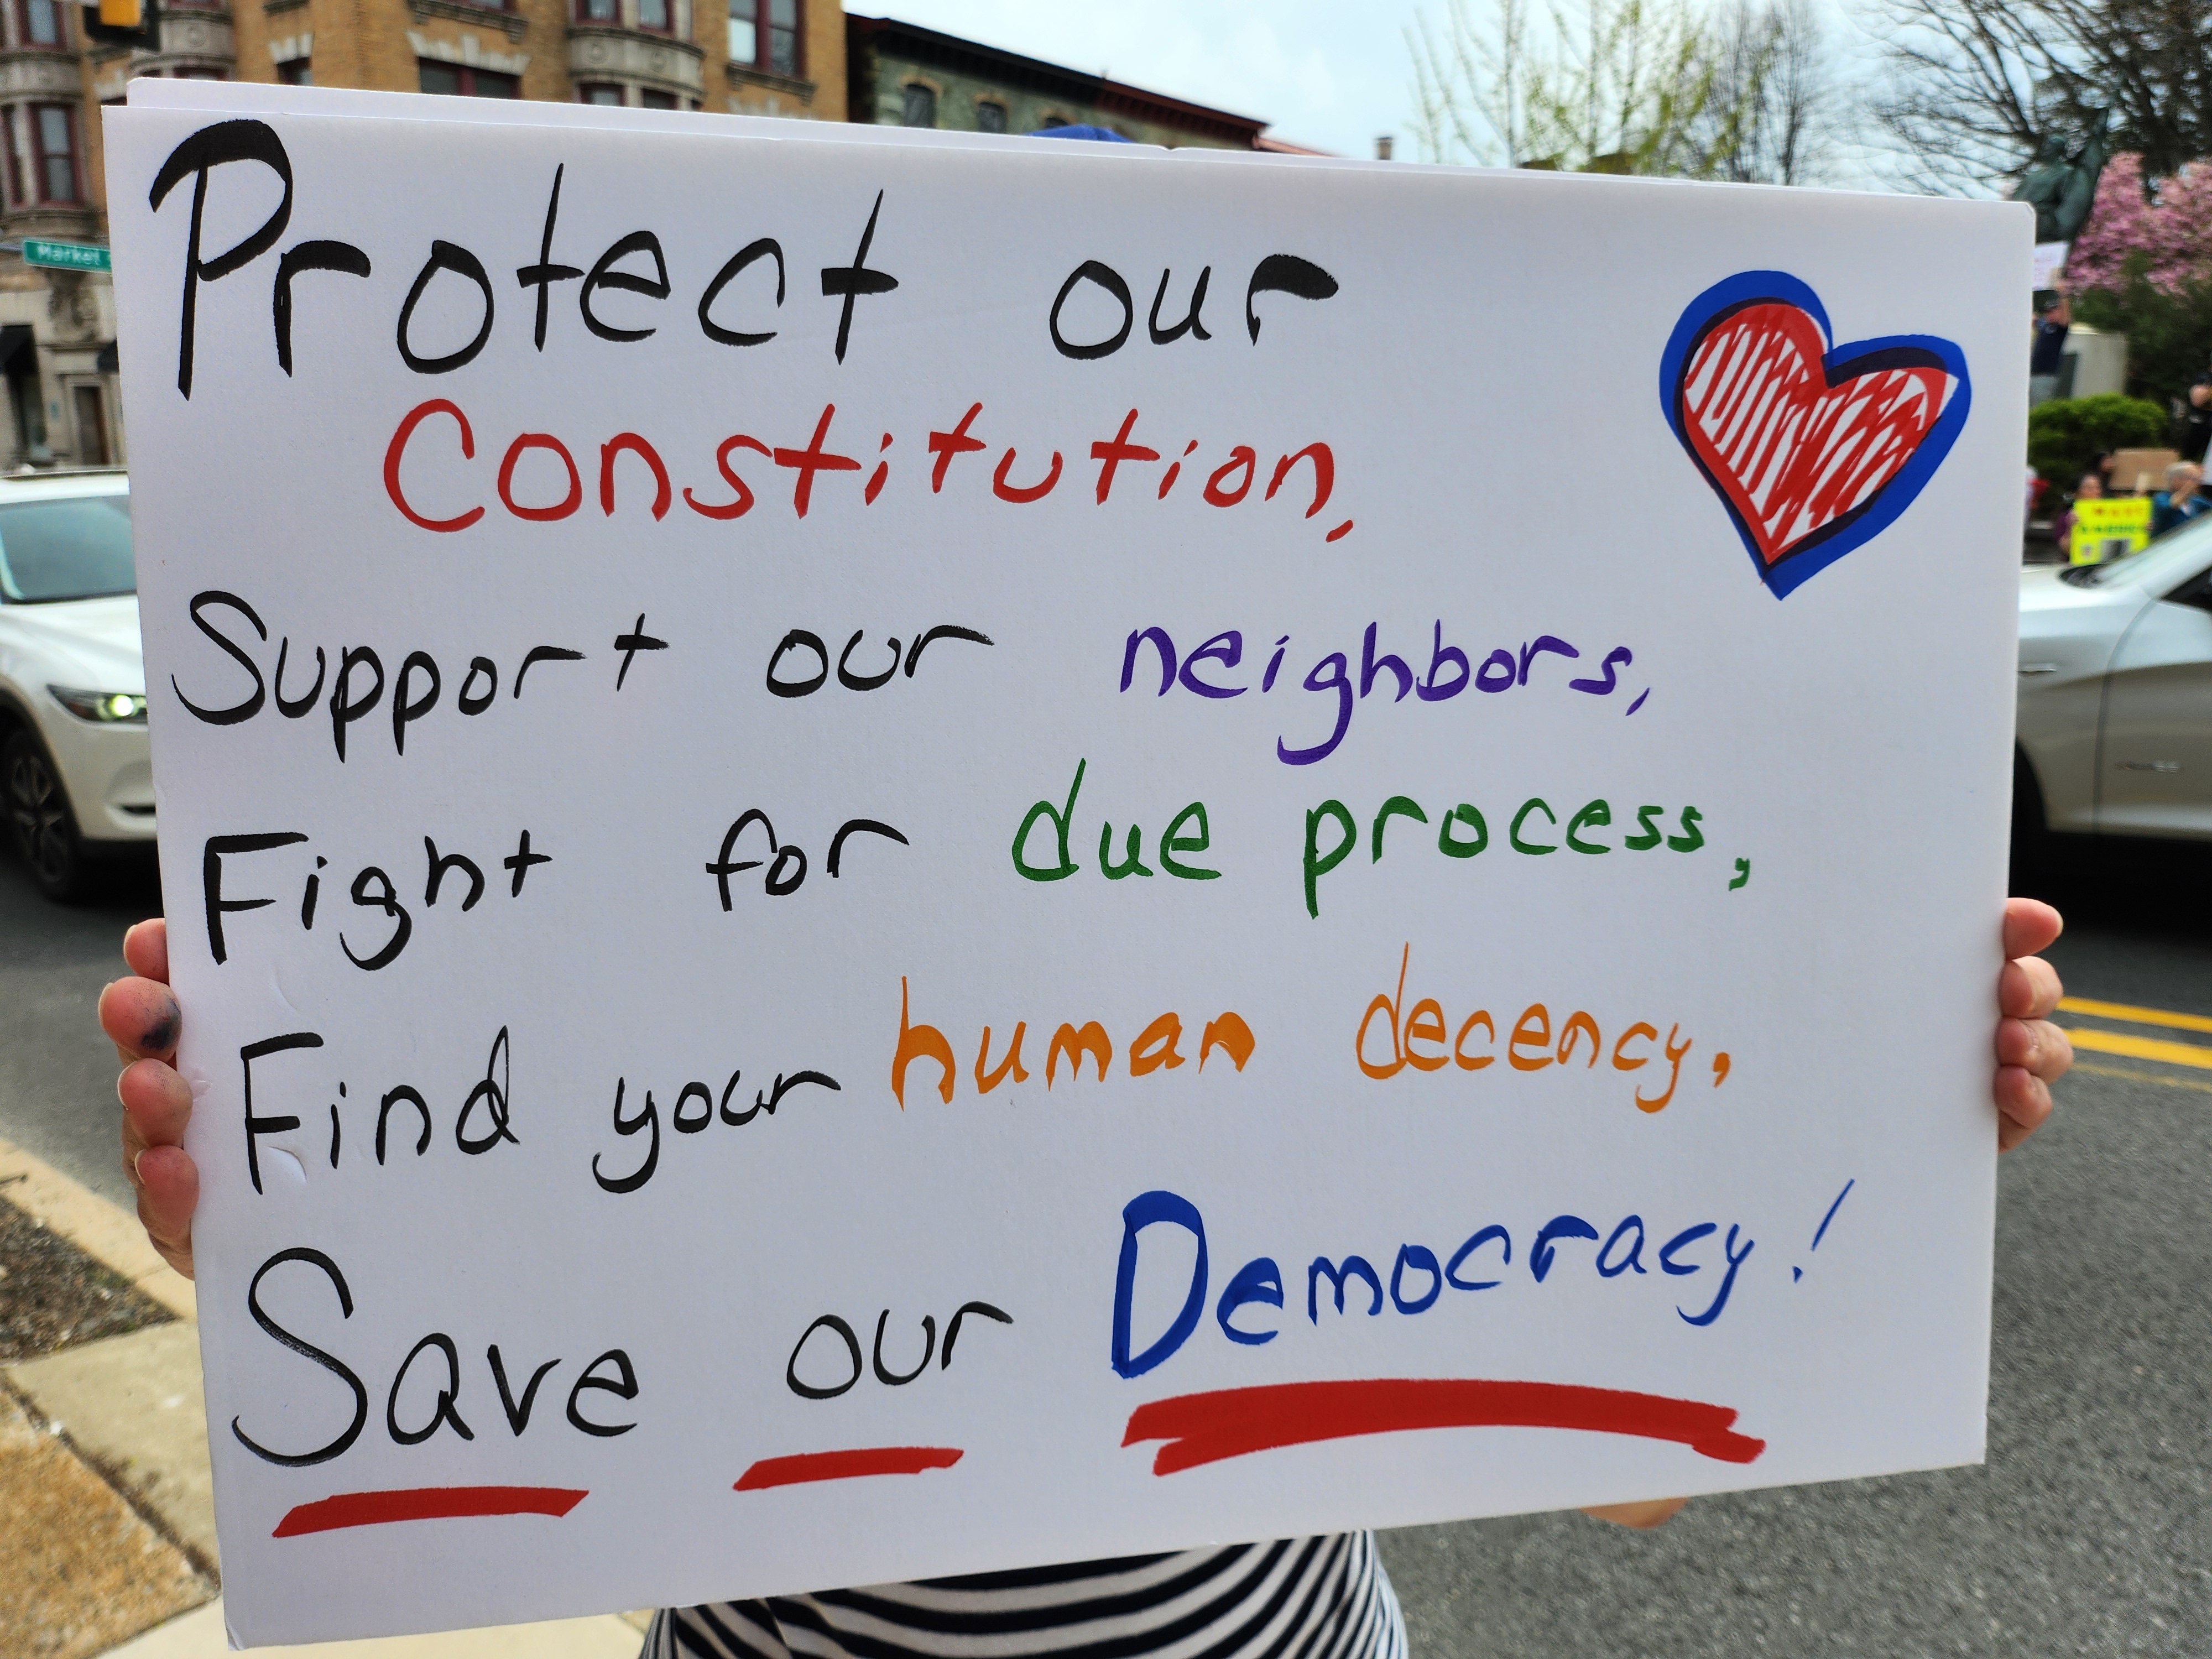 Protect our
Constitution,
Support our neighbors,
Fight for due process,
Find your human decency,
Save our Democracy!
Market